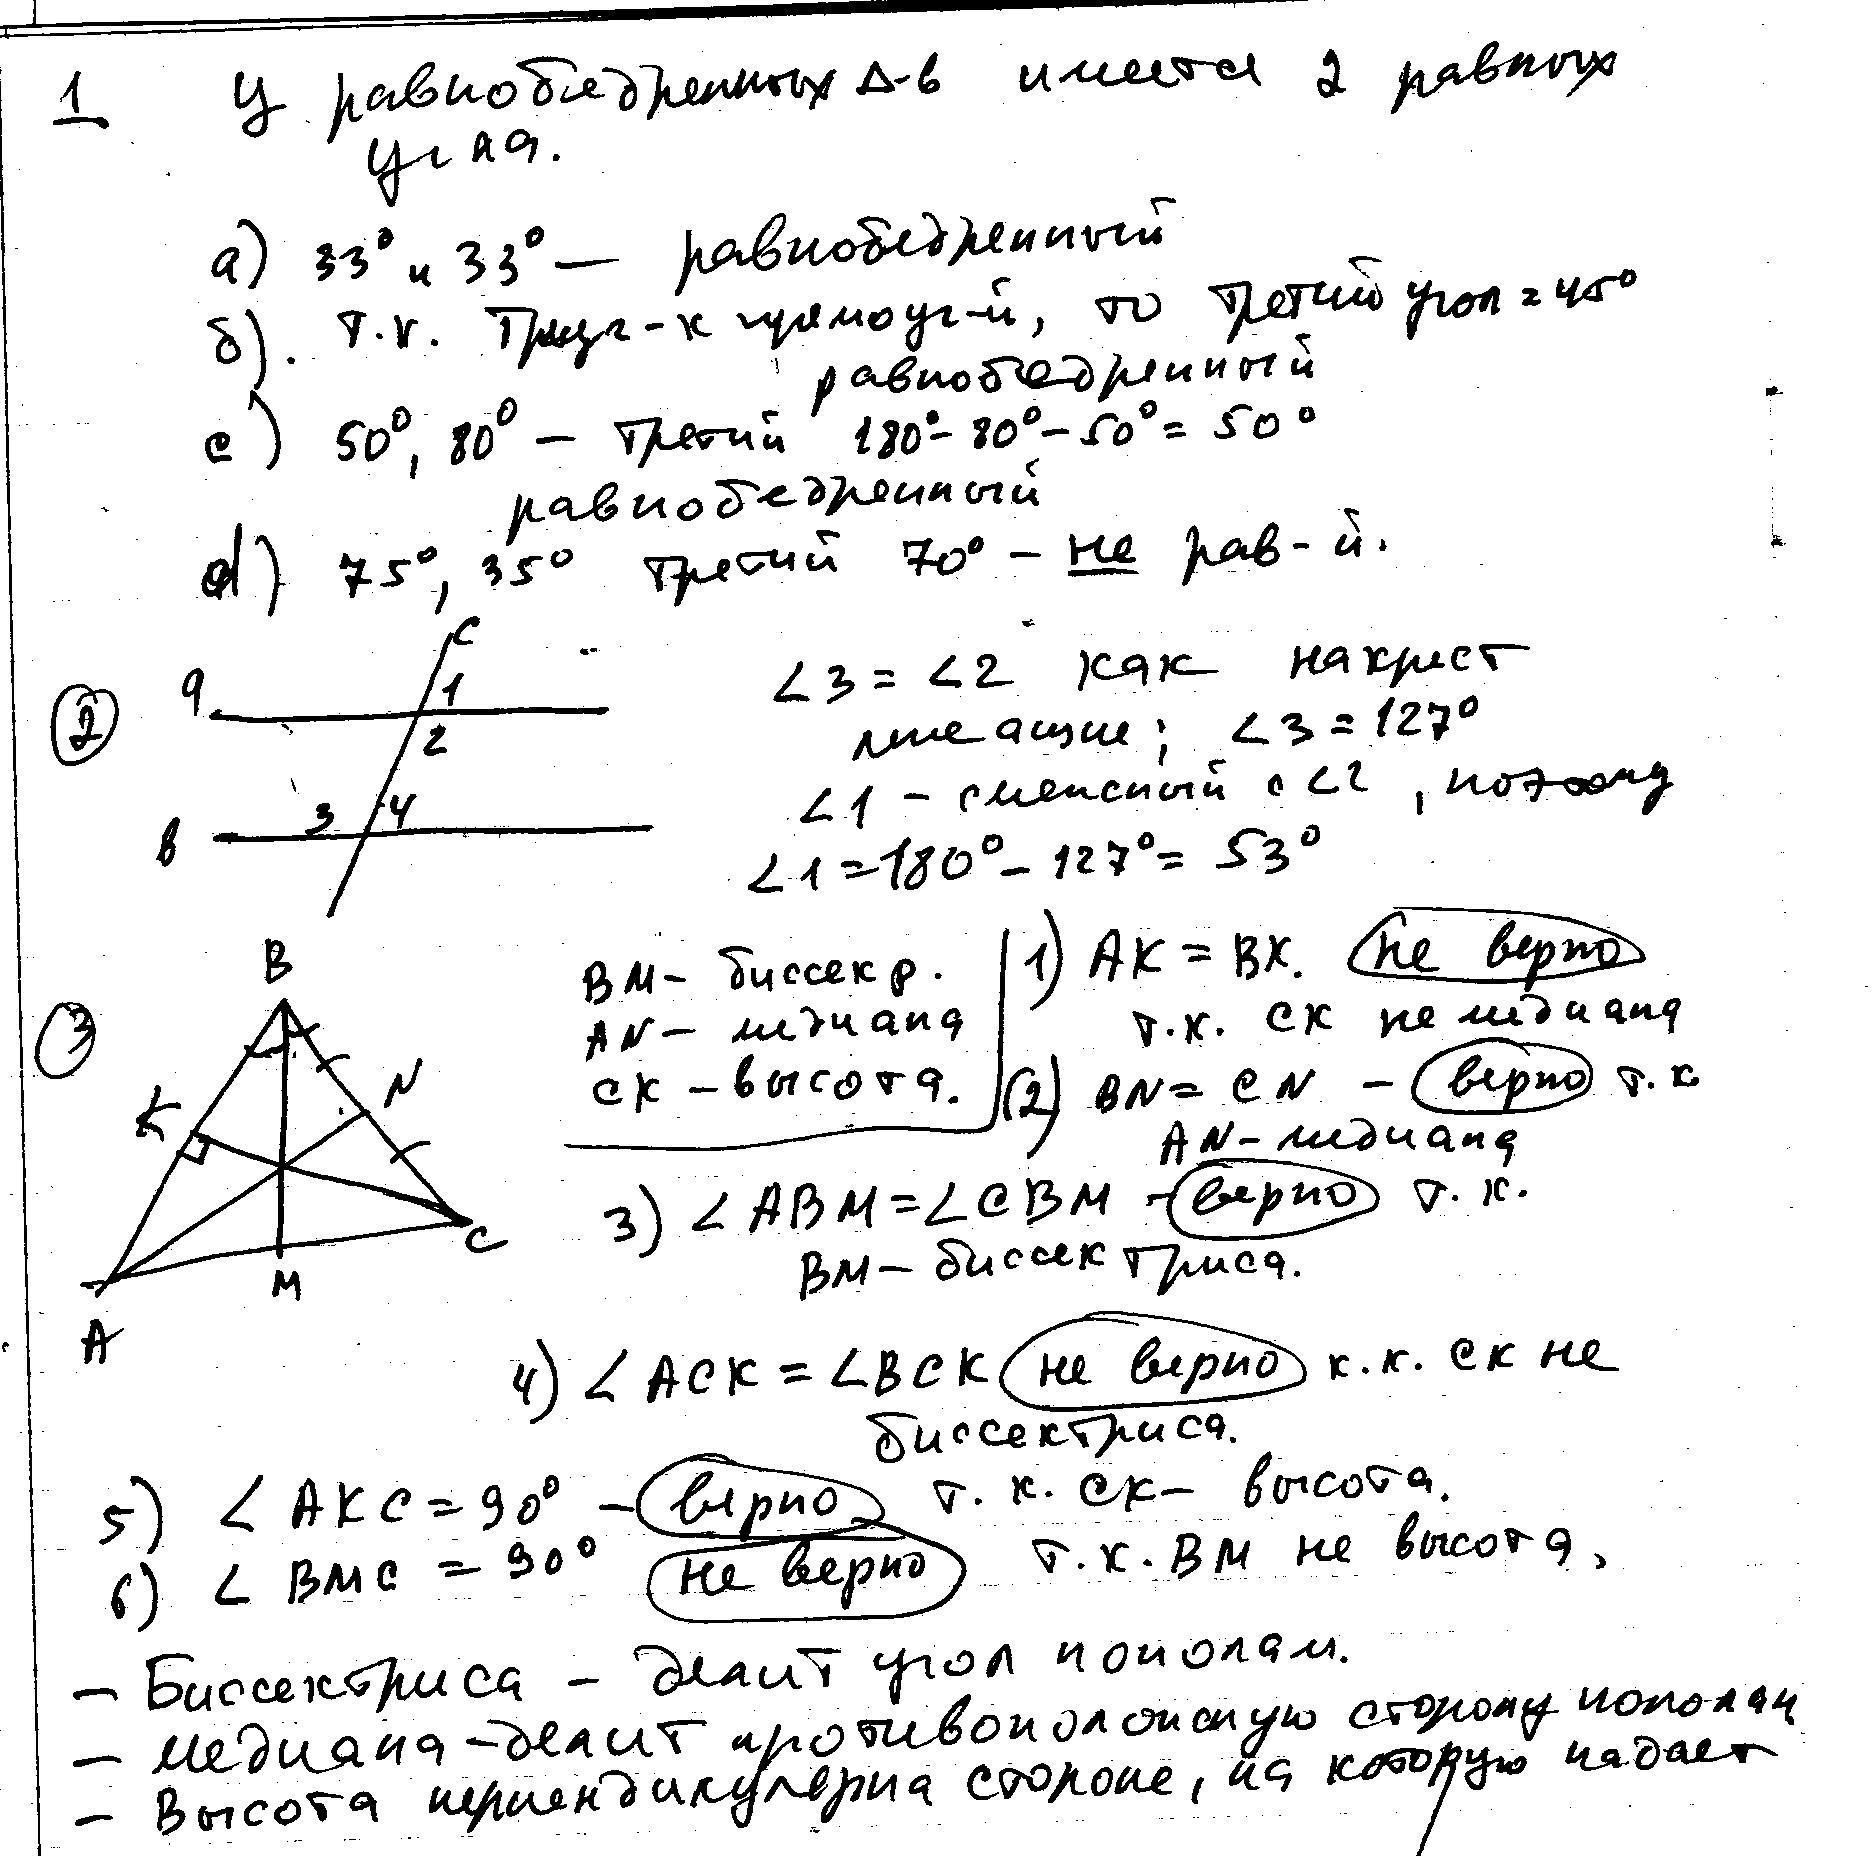 1 У равнобедренных Δ-в имеется 2 равных
угла.
а) 33° и 33° — равнобедренный
б). т.к. треуг-к прямоуг-й, то третий угол = 45°
равнобедренный
с) 50°, 80° — третий 180°-80°-50°= 50°
равнобедренный
d) 75°, 35° третий 70° — не рав-й.
2
c
a
1
2
3
4
в
∠3 = ∠2 как накрест
лежащие; ∠3 = 127°
∠1 — смежный с ∠2, поэтому
∠1 = 180° - 127° = 53°
3
B
K
N
A
M
C
BM — биссекр.
AN — медиана
CK — высота.
1) AK = BK. не верно
т.к. CK не медиана
(2) BN = CN — верно т.к
AN — медиана
3) ∠ABM = ∠CBM - верно т.к.
BM — биссектриса.
4) ∠ACK = ∠BCK не верно к.к. CK не
биссектриса.
5) ∠AKC = 90° — верно т.к. CK — высота.
6) ∠BMC = 90° не верно т.к. BM не высота.
— Биссектриса — делит угол пополам.
— Медиана — делит противоположную сторону пополам
— Высота перпендикулярна стороне, на которую падает